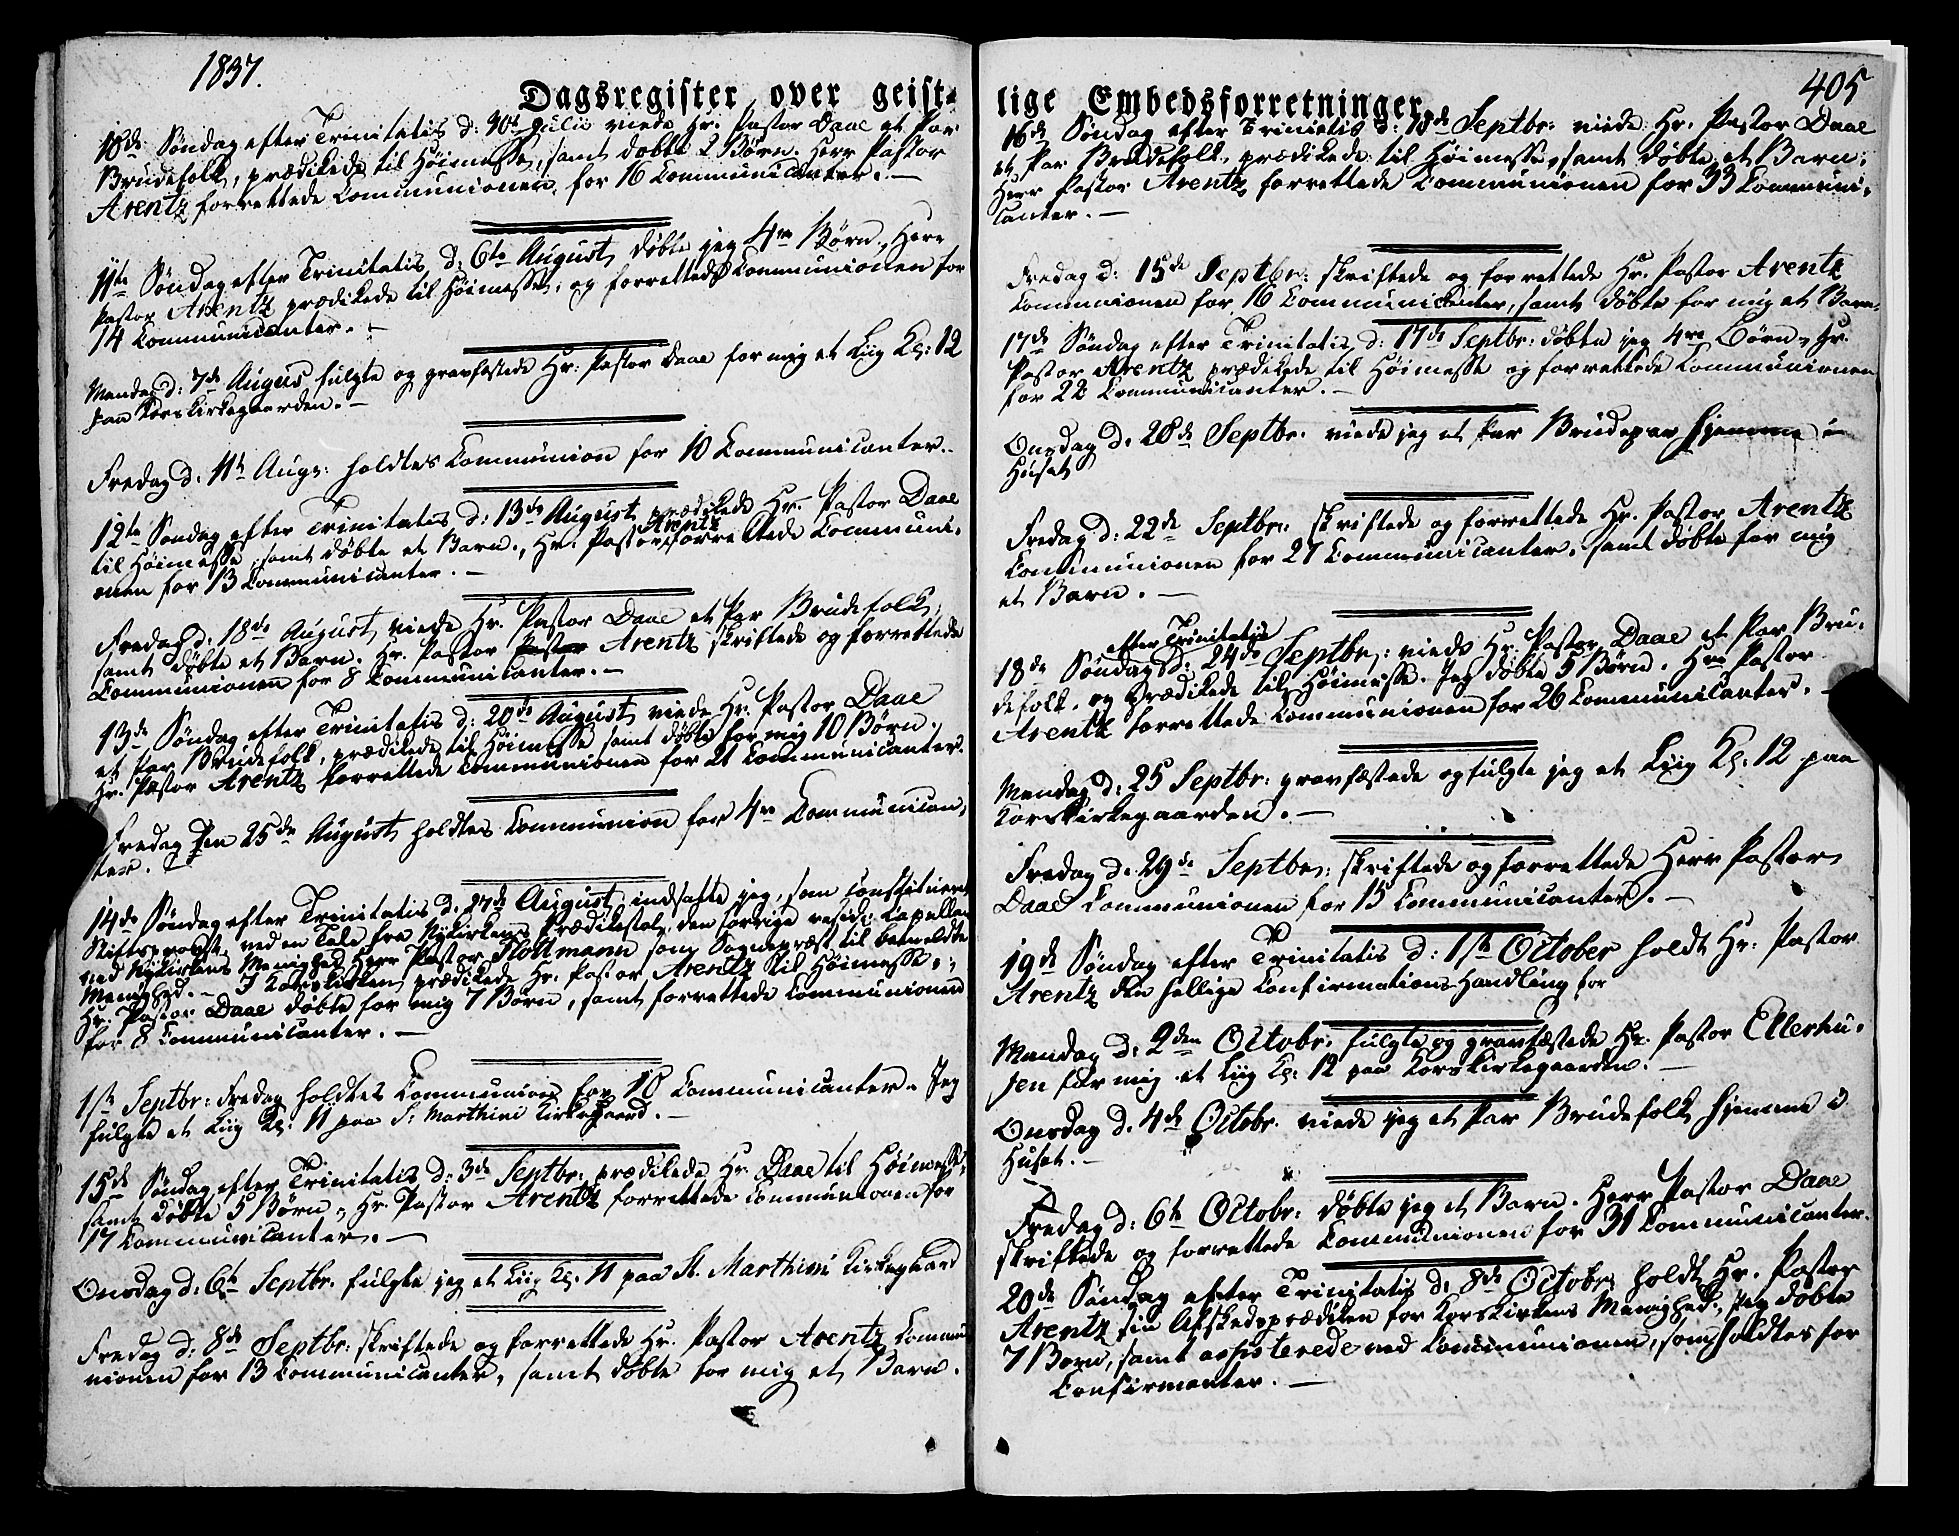 1837.
Dagsregister over geist-
10de Søndag efter Trinitatis d: 30te Julii viede Hr. Pastor Daae et Par
Brudefolk, prædikede til Høimesse, samt døbte 2 Børn. Herr Pastor
Arentz forrettede Communionen for 16 Communicanter. —
11te Søndag efter Trinitatis d: 6te August døbte jeg 4re Børn, Herr
Pastor Arentz prædikede til Høimesse, og forrettede Communionen for
14 Communicanter. —
Mandag d: 7de Augus fulgte og gravfæstede Hr: Pastor Daae for mig et Liig Kl: 12
paa Korskirkegaarden. —
Fredag d. 11te Aug: holdtes Communion for 10 Communicanter. —
12te Søndag efter Trinitatis d: 13de August prædikede Hr. Pastor Daae
til Høimesse, samt døbte et Barn., Hr: Pastor Arentz forrettede Communi-
onen for 13 Communicanter. —
Fredag d. 18de August viede Hr. Pastor Daae et Par Brudefolk,
samt døbte et Barn. Hr. Pastor Pastor Arentz skriftede og forrettede
Communionen for 8 Communicanter. —
13de Søndag efter Trinitatis d: 20de August viede Hr. Pastor Daae
et Par Brudefolk, prædikede til Høimesse samt døbte for mig 10 Børn.
Hr. Pastor Arentz forrettede Communionen for 21 Communicanter.
Fredag den 25de August holdtes Communion for 4re Communican-
ter. —
14de Søndag efter Trinitatis d. 27de August, indsatte jeg, som constitueret
Stiftsprovst, ved en Tale fra Nykirkens Prædikestol, den forrige resid: Capellan
ved Nykirkens Menighed Herr Pastor Flottmann som Sognepræst til bemeldte
Menighed. — I Korskirken prædikede Hr. Pastor Arentz til Høimesse.
Hr. Pastor Daae døbte for mig 7 Børn, samt forrettede Communionen
for 8 Communicanter. —
1ste Septbr: Fredag holdtes Communion for 10 Communicanter. Jeg
fulgte et Liig Kl: 11 paa S: Marthini Kirkegaard. —
15de Søndag efter Trinitatis d: 3de Septbr: prædikede Hr Daae til Høimesse,
samt døbte 5 Børn, Hr. Pastor Arentz forrettede Communionen for
17 Communicanter. —
Onsdag d: 6te Septbr. fulgte jeg et Liig Kl: 11 paa St. Marthini Kirkegaard
Fredag d: 8de Septbr: skriftede og forrettede Hr. Pastor Arentz Commu
nionen for 13 Communicanter, samt døbte for mig et Barn.
405
lige Embedsforretninger.
16de Søndag efter Trinitatis d: 10de Septbr: viede Hr. Pastor Daae
et Par Brudefolk, prædikede til Høimesse, samt døbte et Barn;
Herr Pastor Arentz forrettede Communionen for 33 Communi-
canter. —
Fredag d: 15de Septbr: skriftede og forrettede Hr. Pastor Arentz
Communionen for 16 Communicanter, samt døbte for mig et Barn.
17de Søndag efter Trinitatis d: 17de Septbr: døbte jeg 4re Børn, Hr.
Pastor Arentz prædikede til Høimesse og forrettede Communionen
for 22 Communicanter. —
Onsdag d. 20de Septbr. viede jeg et Par Brudepar hjemme i
Huset
Fredag d: 22de Septbr: skriftede og forrettede Hr. Pastor Arentz
Communionen for 27 Communicanter, samt døbte for mig
et Barn. —
efter Trinitatis
18de Søndag d: 24de Septbr: viede Hr. Pastor Daae et Par Bru-
defolk, og prædikede til Høimesse. Jeg døbte 5 Børn. Hr Pastor
Arentz forrettede Communionen for 26 Communicanter. —
Mandag d: 25 Septbr: gravfæstede og fulgte jeg et Liig Kl: 12 paa
Korskirkegaarden. —
Fredag d: 29de Septbr: skriftede og forrettede Herr Pastor
Daae Communionen for 15 Communicanter. —
19de Søndag efter Trinitatis d: 1ste October holdt Hr: Pastor
Arentz den hellige Confirmations-Handling for
Mandag d: 2den Octobr. fulgte og gravfæstede Hr. Pastor Ellerhu-
sen for mig et Liig Kl: 12 paa Korskirkegaarden. —
Onsdag d. 4de Octobr. viede jeg et Par Brudefolk hjemme i
Huset. —
Fredag d: 6te Octobr: døbte jeg et Barn. Herr Pastor Daae
skriftede og forrettede Communionen for 31 Communicanter.
20de Søndag efter Trinitatis d. 8de Octobr holdt Hr. Pastor
Arentz sin Afskedsprædiken for Korskirkens Menighed, Jeg døbte
7 Børn, samt assisterede ved Communionen, som holdtes for
Confirmanter. —